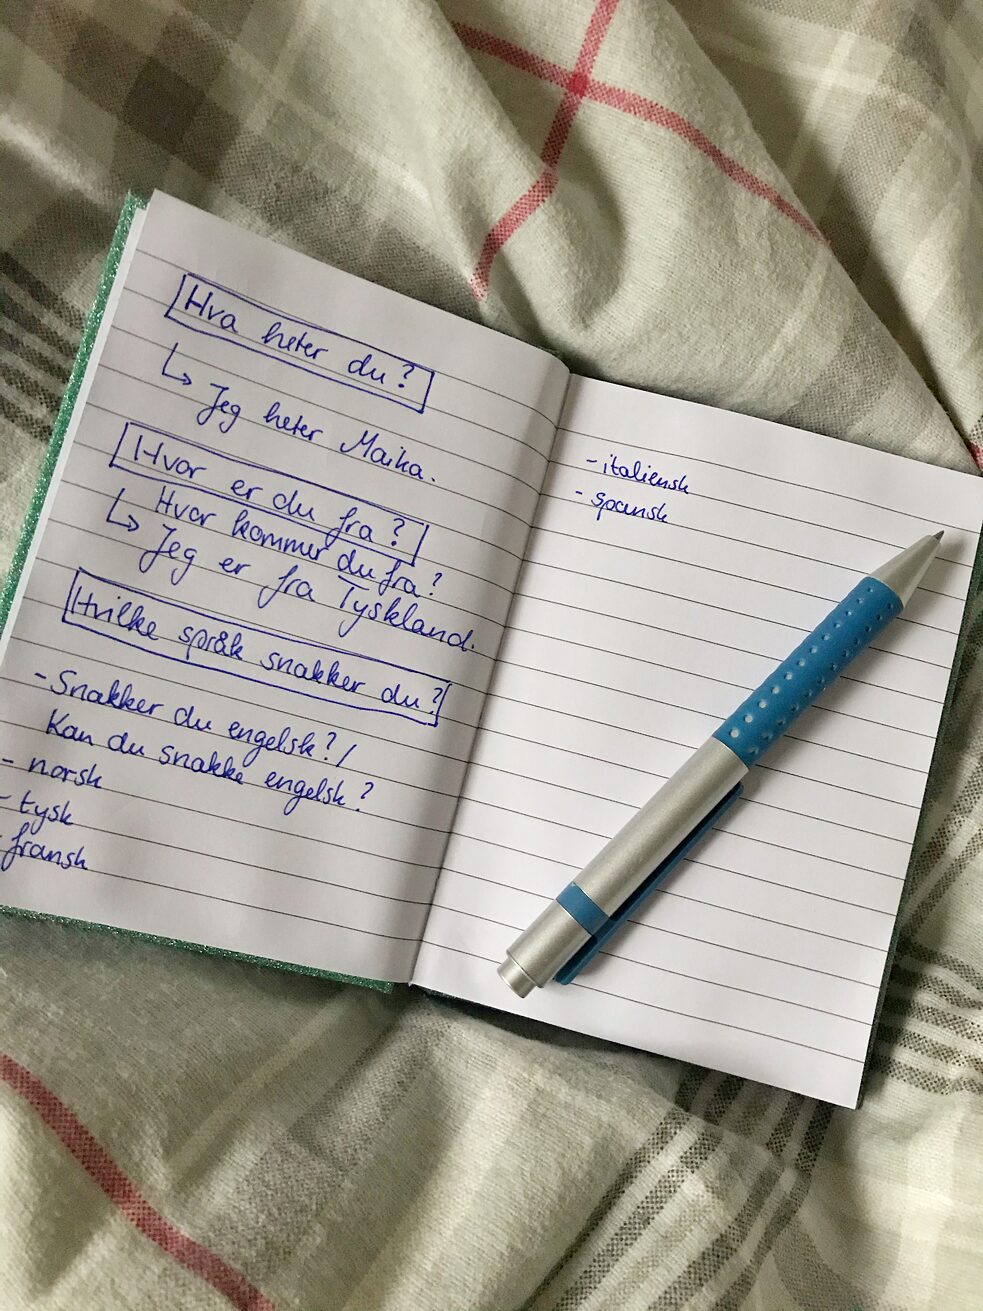 Hva heter du?
↳ Jeg heter Maika.
Hvor er du fra?
Hvor kommer du fra?
↳ Jeg er fra Tyskland.
Hvilke språk snakker du?
- Snakker du engelsk? /
Kan du snakke engelsk?
- norsk
- tysk
- fransk
- italiensk
- spansk